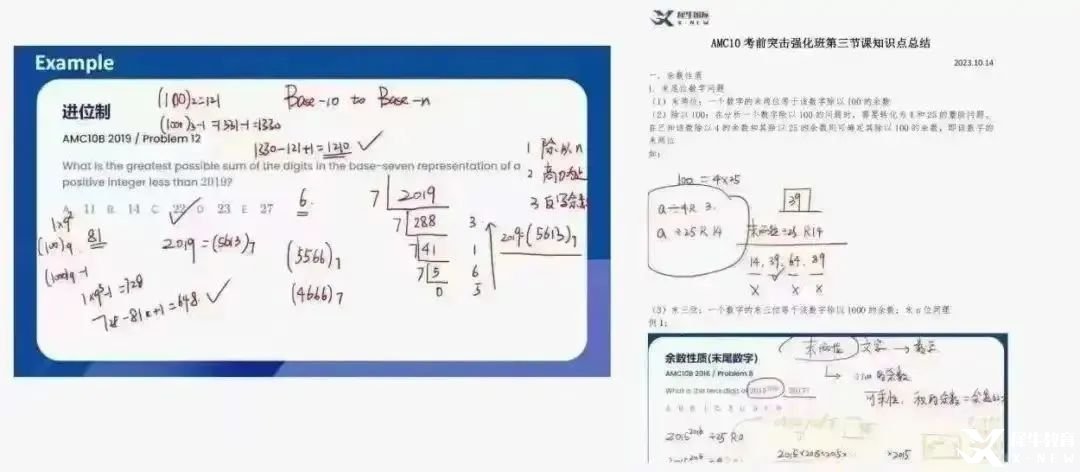 Example
进位制
AMC10B 2019 / Problem 12
What is the greatest possible sum of the digits in the base-seven representation of a
positive integer less than 2019?
A. 11 B. 14 C. 22 D. 23 E. 27
Base-10 to Base-n
1330-121+1=1210
1 除以n
2
3 反写余数
6
7 2019
7 288 3
7 41 1
7 5 6
0 5
2019=(5613)₇
(5566)₇
(4666)₇
81
728-81+1=648
犀牛国际
X-NEW
AMC10 考前突击强化班第三节课知识点总结
2023.10.14
一、余数性质
1. 末尾位数字问题
(1) 末两位:一个数字的末两位等于该数字除以 100 的余数
(2) 除以 100:在分析一个数字除以 100 的问题时,需要转化为 4 和 25 的整除问题,
在已知该数除以 4 的余数和其除以 25 的余数则可确定其除以 100 的余数,即该数字的
末两位
如:
100 = 4×25
39
a÷4R 3.
a÷25 R 14
末两位÷25 R14
14, 39, 64, 89
X ✓ X X
(3) 末三位:一个数字的末三位等于该数字除以 1000 的余数;末 n 位同理
例 1:
余数性质(末尾数字)
末两位 文字 → 数字
AMC10B 2016 / Problem 8
What is the tens digit of 2015²⁰¹⁶ - 2017?
可乘性,
2015²⁰¹⁶÷25 R0
2015×2015×2015× ×2015
犀牛教育
X-NEW